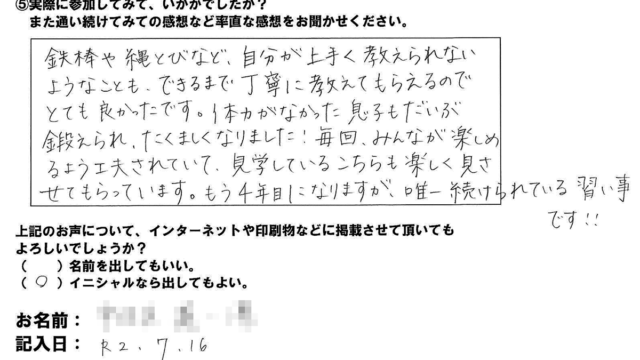 ⑤実際に参加してみて、いかがでしたか？
また通い続けてみての感想など率直な感想をお聞かせください。
鉄棒や縄とびなど、自分が上手く教えられない
ようなことも、できるまで丁寧に教えてもらえるので
とても良かったです。体力がなかった息子もだいぶ
鍛えられ、たくましくなりました！毎回、みんなが楽しめ
るよう工夫されていて、見学しているこちらも楽しく見さ
せてもらっています。もう4年目になりますが、唯一続けられている習い事
です!!
上記のお声について、インターネットや印刷物などに掲載させて頂いても
よろしいでしょうか？
（　　）名前を出してもいい。
（ ○ ）イニシャルなら出してもよい。
お名前：
記入日： R2. 7. 16